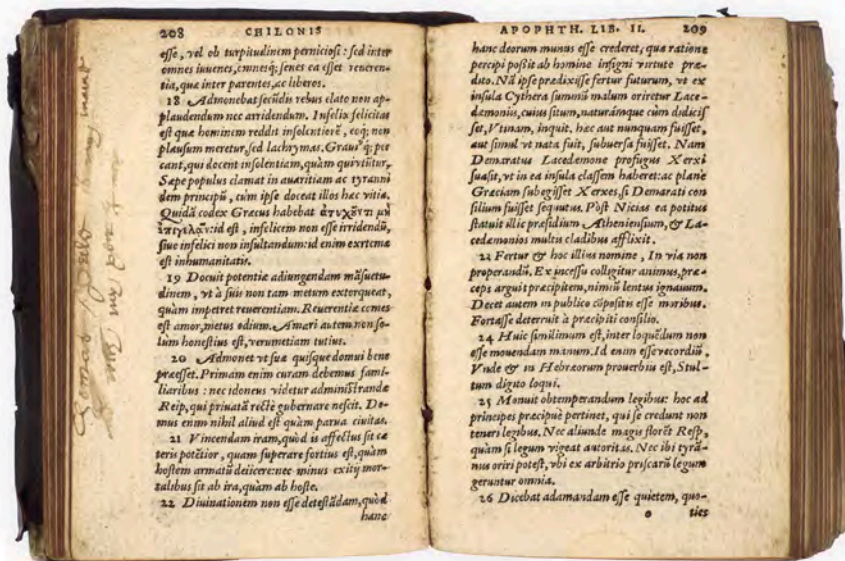 208 CHILONIS
esse, vel ob turpitudinem perniciosi: sed inter
omnes iuuenes, omnesq́; senes ea esset reueren-
tia, quæ inter parentes, ac liberos.
18 Admonebat secūdis rebus elato non ap-
plaudendum nec arridendum. Infelix felicitas
est quæ hominem reddit insolentiorē, eoq́; non
plausum meretur, sed lachrymas. Grauiꝰ q́; pec
cant, qui docent insolentiam, quàm qui vtūtur.
Sæpe populus clamat in auaritiam ac tyranni
dem principū, cùm ipse doceat illos hæc vitia.
Quidā codex Græcus habebat ἀτυχοῦντι μὴ
ἐπιγελᾷν: id est, infelicem non esse irridendū,
siue infelici non insultandum: id enim extremæ
est inhumanitatis.
19 Docuit potentiæ adiungendam māsuetu-
dinem, vt à suis non tam metum extorqueat,
quàm impetret reuerentiam. Reuerentiæ comes
est amor, metus odium. Amari autem non so-
lum honestius est, verumetiam tutius.
20 Admonet vt suæ quisque domui bene
præesset. Primam enim curam debemus fami-
liaribus: nec idoneus videtur administrandæ
Reip. qui priuatā rectè gubernare nescit. Do-
mus enim nihil aliud est quàm parua ciuitas.
21 Vincendam iram, quòd is affectus sit cæ
teris potētior, quam superare fortius est, quàm
hostem armatū deiicere: nec minus exitij mor-
talibus sit ab ira, quàm ab hoste.
22 Diuinationem non esse detestādam, quòd
hanc
APOPHTH. LIB. II. 209
hanc deorum munus esse crederet, quæ ratione
percipi poßit ab homine insigni virtute præ-
dito. Nā ipse prædixisse fertur futurum, vt ex
insula Cythera summū malum oriretur Lace-
dæmoniis, cuius situm, naturámque cùm didicis
set, Vtinam, inquit, hæc aut nunquam fuisset,
aut simul vt nata fuit, subuersa fuisset. Nam
Demaratus Lacedæmone profugus Xerxi
suasit, vt in ea insula classem haberet: ac plane
Græciam subegisset Xerxes, si Demarati con
silium fuisset sequutus. Pòst Nicias ea potitus
statuit illic præsidium Atheniensium, & La-
cedæmonios multis cladibus afflixit.
22 Fertur & hoc illius nomine, In via non
properandū. Ex incessu colligitur animus, præ-
ceps arguit præcipitem, nimiū lentus ignauum.
Decet autem in publico cōpositis esse moribus.
Fortasse deterruit à præcipiti consilio.
24 Huic simillimum est, inter loquēdum non
esse mouendam manum. Id enim esse vecordiū.
Vnde & in Hebræorum prouerbiis est, Stul-
tum digito loqui.
25 Monuit obtemperandum legibus: hoc ad
principes præcipuè pertinet, qui se credunt non
teneri legibus. Nec aliunde magis florēt Resp.
quàm si legum vigeat autoritas. Nec ibi tyrā-
nus oriri potest, vbi ex arbitrio priscarū legum
geruntur omnia.
26 Dicebat adamandam esse quietem, quo-
o ties